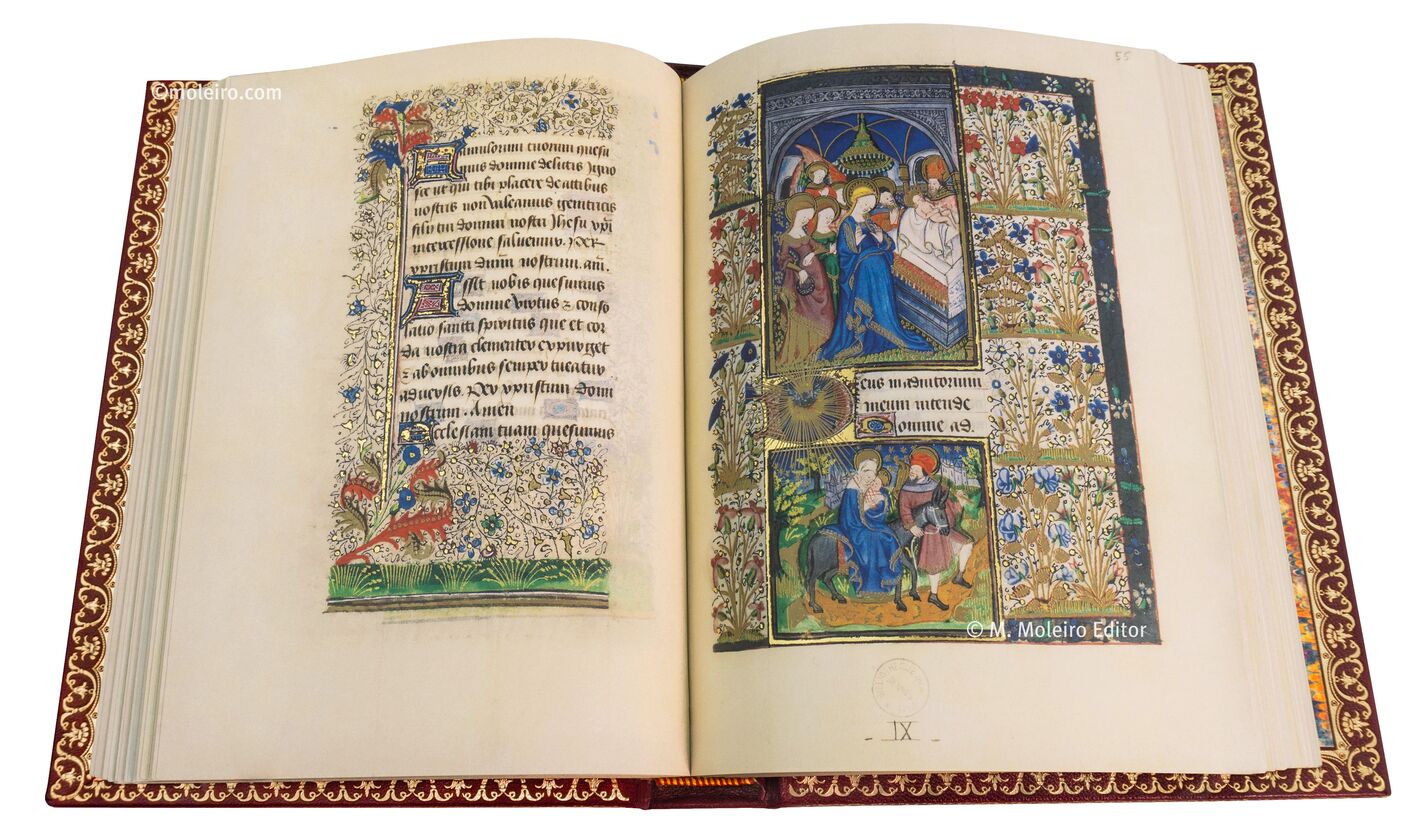 ©moleiro.com
Famulorum tuorum quesu
mus domine delictis igno
sce ut qui tibi placere de actibus
nostris non valeamus genitricis
filij tui domini nostri Jhesu xpi
intercessione saluemur. per
xpristum dnm nostrum. am.
Assit nobis quesumus
domine virtus z conso
latio sancti spiritus que et cor
da nostra clementer expurget
z ab omnibus semper tueatur
aduersis. Per xpristum dom
nostrum. Amen
Ecclesiam tuam quesumus
55
Deus in adiutorium
meum intende
Domine ad.
© M. Moleiro Editor
- IX -